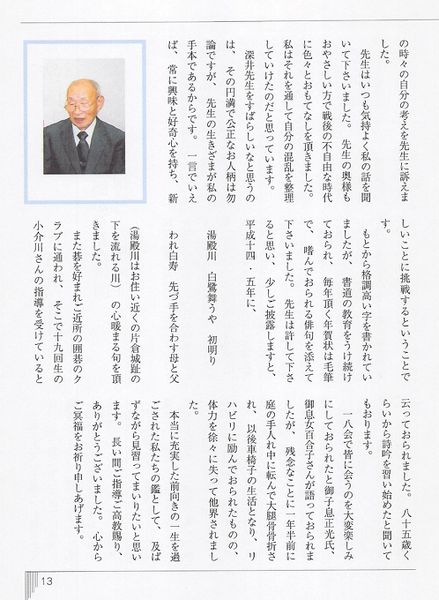 の時々の自分の考えを先生に訴えま
した。
　先生はいつも気持よく私の話を聞
いて下さいました。先生の奥様も
おやさしい方で戦後の不自由な時代
に色々とおもてなしを頂きました。
私はそれを通して自分の混乱を整理
していけたのだと思っています。
　深井先生をすばらしいなと思うの
は、その円満で公正なお人柄は勿
論ですが、先生の生きざまが私の
手本であるからです。一言でいえ
ば、常に興味と好奇心を持ち、新
しいことに挑戦するということで
す。
　もとから格調高い字を書かれてい
ましたが、書道の教育をうけ続け
ておられ、毎年頂く年賀状は毛筆
で、嗜んでおられる俳句を添えて
下さいました。先生は許して下さ
ると思い、少しご披露しますと、
平成十四・五年に、
湯殿川　白鷺舞うや　初明り
われ白寿　先づ手を合わす母と父
（湯殿川はお住い近くの片倉城趾の
下を流れる川）の心暖まる句を頂
きました。
　また碁を好まれご近所の囲碁のク
ラブに通われ、そこで十九回生の
小介川さんの指導を受けていると
云っておられました。八十五歳く
らいから詩吟を習い始めたと聞いて
もおります。
　一八会で皆に会うのを大変楽しみ
にしておられたと御子息正光氏、
御息女百合子さんが語っておられま
したが、残念なことに一年半前に
庭の手入れ中に転んで大腿骨骨折さ
れ、以後車椅子の生活となり、リ
ハビリに励んでおられたものの、
体力を徐々に失って他界されまし
た。
　本当に充実した前向きの一生を過
ごされた私たちの鑑として、及ば
ずながら見習ってまいりたいと思い
ます。長い間ご指導ご高教賜り、
ありがとうございました。心から
ご冥福をお祈り申しあげます。
13